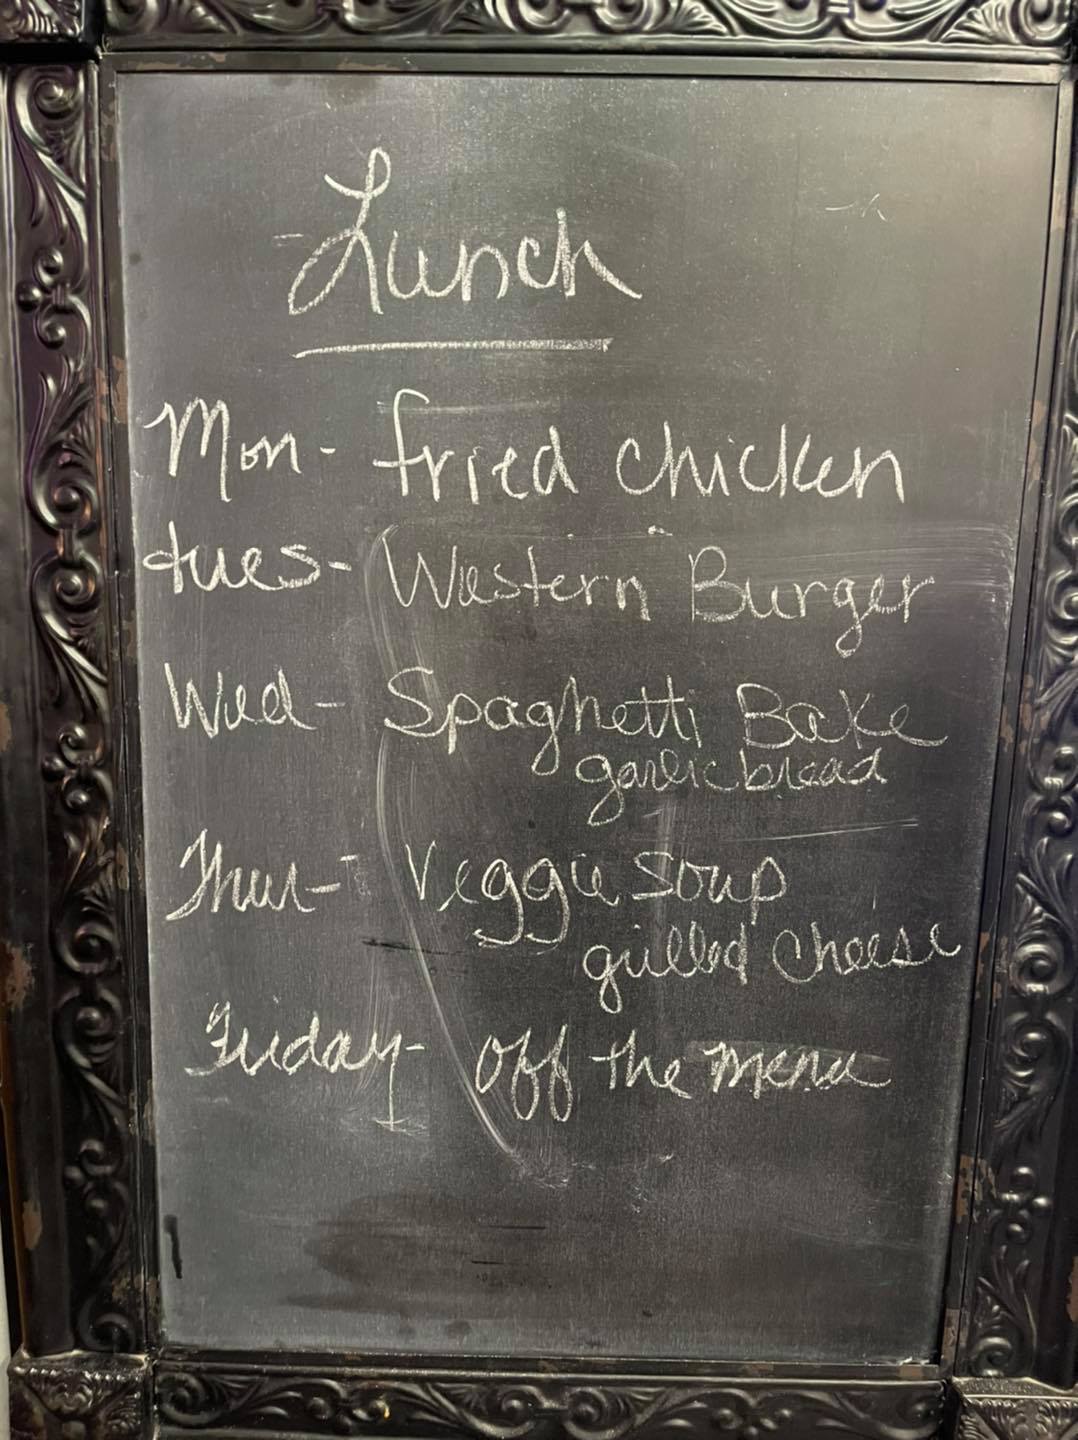 Lunch
Mon- fried chicken
tues- Western Burger
Wed- Spaghetti Bake
garlic bread
Thur- Veggie Soup
grilled cheese
Friday- off the menu